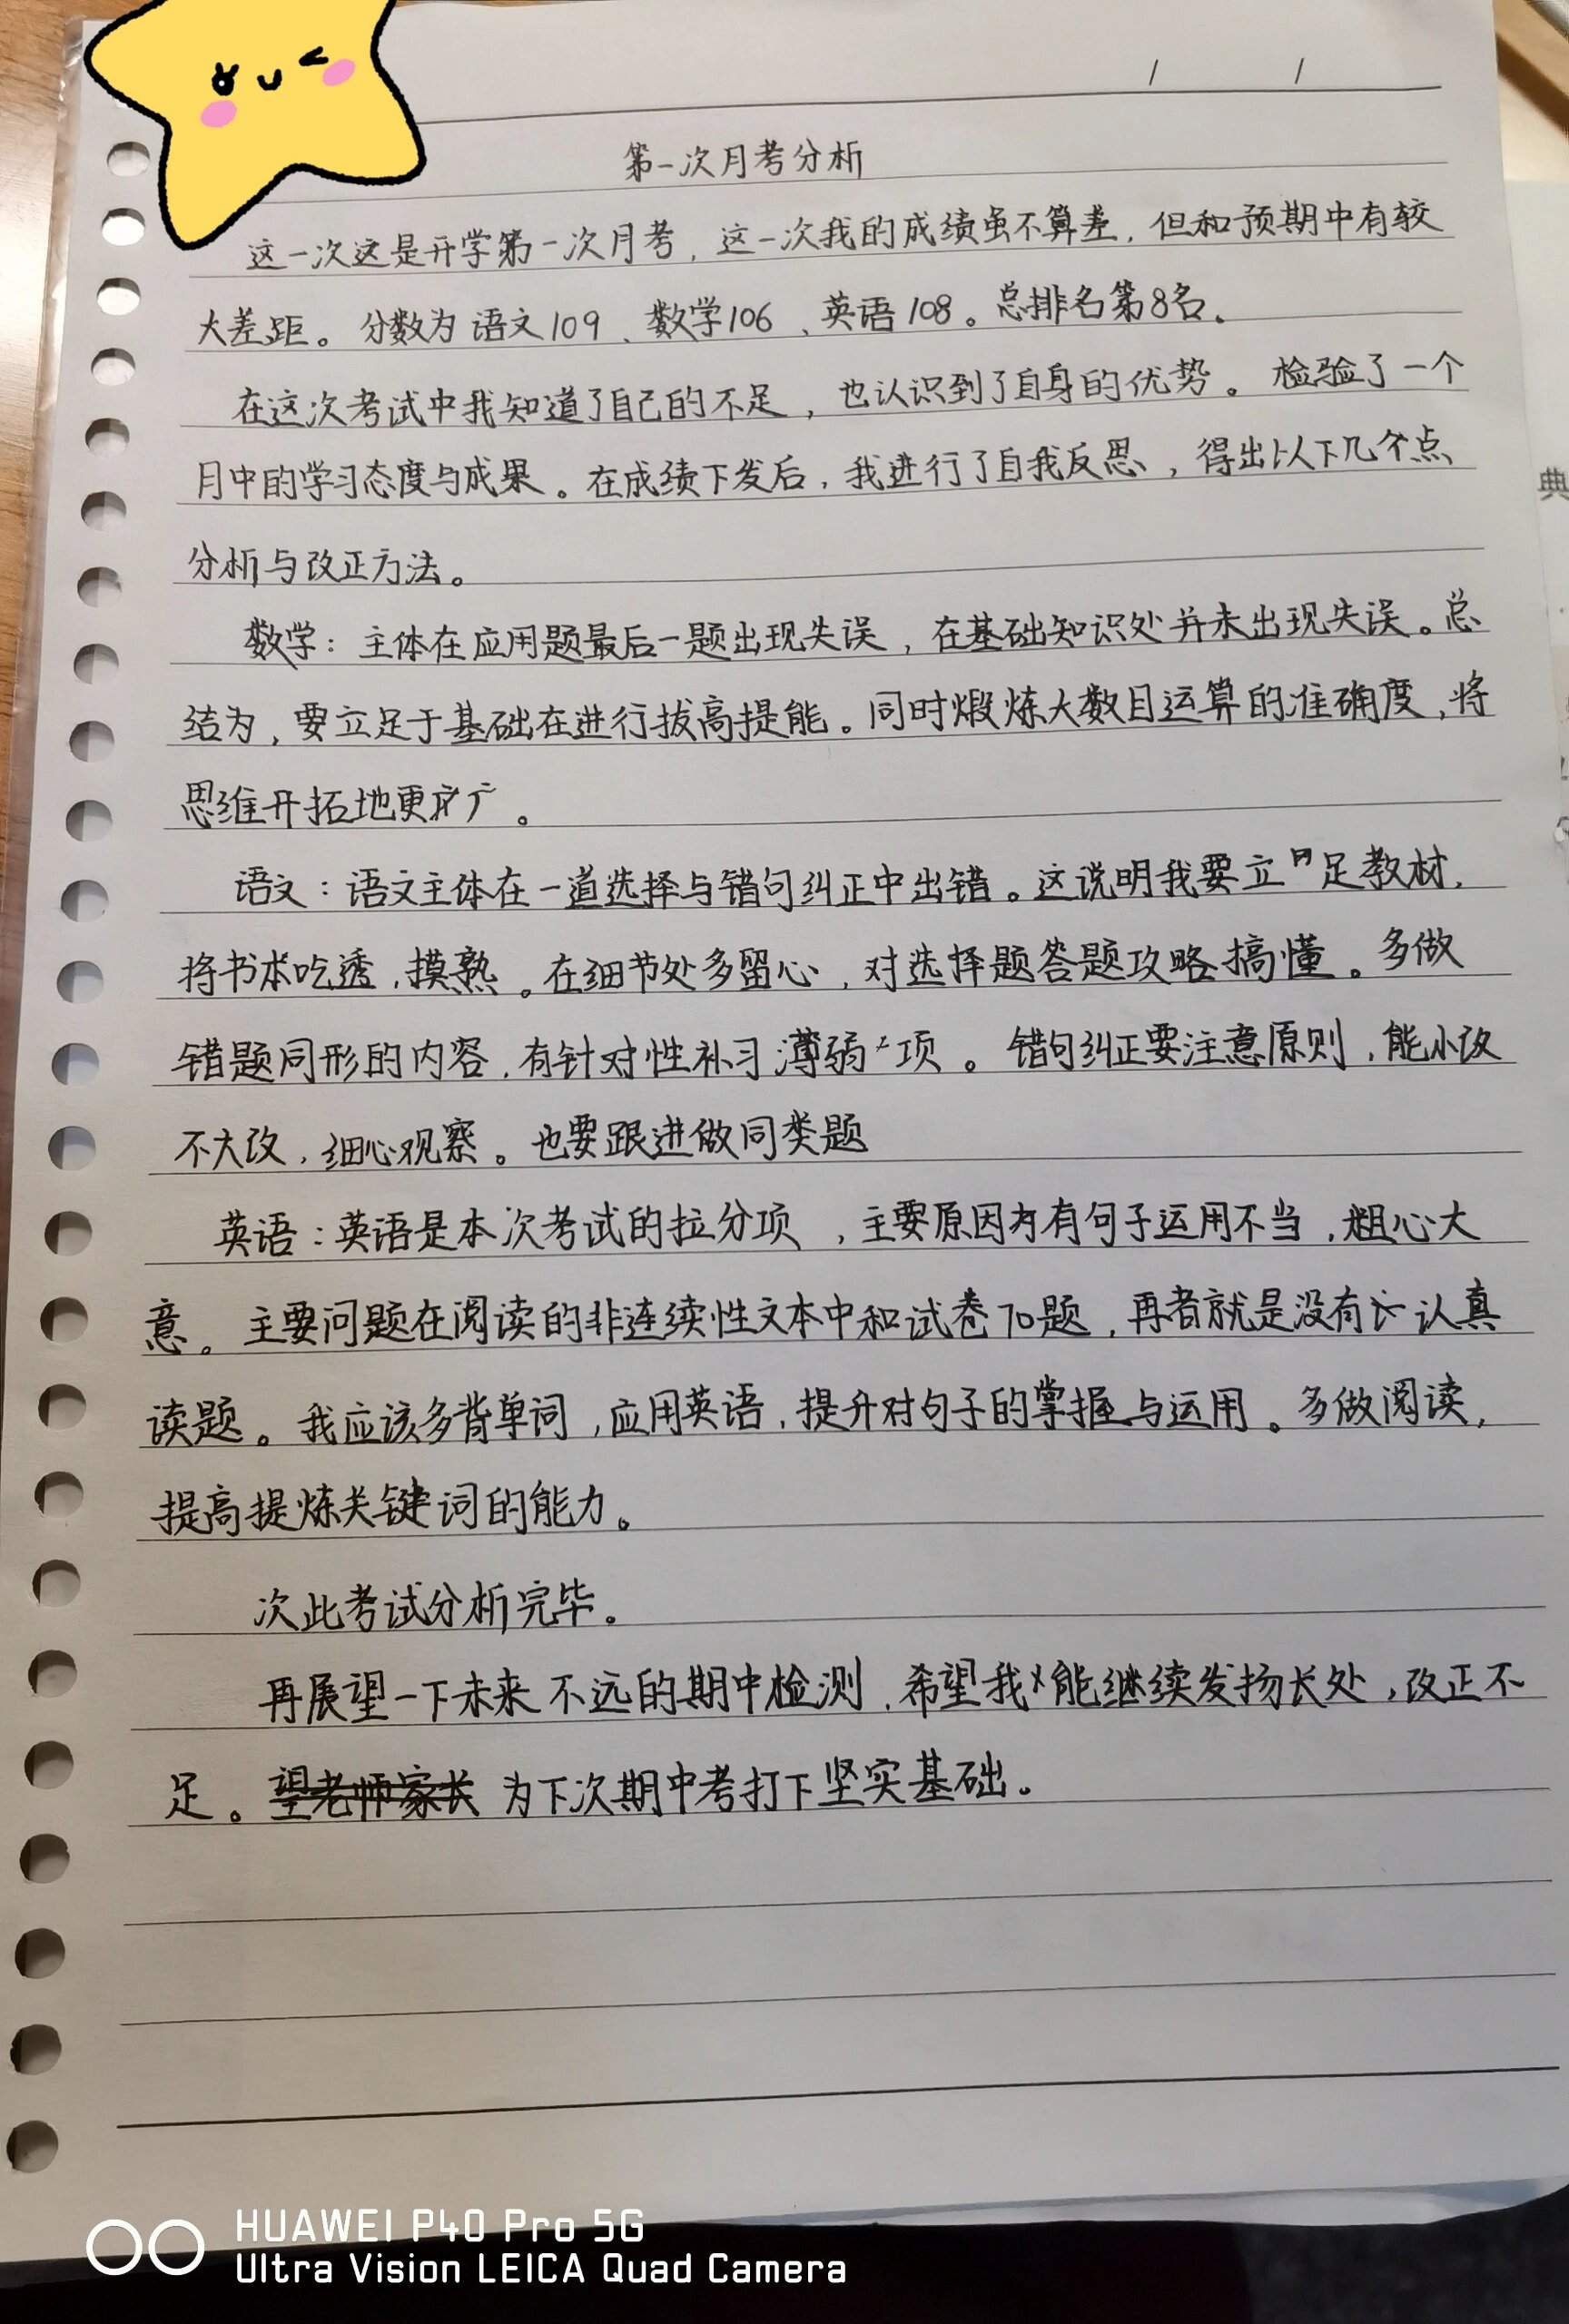 第一次月考分析
这一次这是开学第一次月考，这一次我的成绩虽不算差，但和预期中有较
大差距。分数为语文109、数学106、英语108。总排名第8名。
在这次考试中我知道了自己的不足，也认识到了自身的优势。检验了一个
月中的学习态度与成果。在成绩下发后，我进行了自我反思，得出以下几个点
分析与改正方法。
数学：主体在应用题最后一题出现失误，在基础知识处并未出现失误。总
结为，要立足于基础在进行拔高提能。同时煅炼大数目运算的准确度，将
思维开拓地更广。
语文：语文主体在一道选择与错句纠正中出错。这说明我要立足教材，
将书本吃透，摸熟。在细节处多留心，对选择题答题攻略搞懂。多做
错题同形的内容，有针对性补习薄弱项。错句纠正要注意原则，能小改
不大改，细心观察。也要跟进做同类题
英语：英语是本次考试的拉分项，主要原因为有句子运用不当，粗心大
意。主要问题在阅读的非连续性文本中和试卷70题，再者就是没有认真
读题。我应该多背单词，应用英语，提升对句子的掌握与运用。多做阅读，
提高提炼关键词的能力。
次此考试分析完毕。
再展望一下未来不远的期中检测，希望我能继续发扬长处，改正不
足。望老师家长 为下次期中考打下坚实基础。
典
HUAWEI P40 Pro 5G
Ultra Vision LEICA Quad Camera